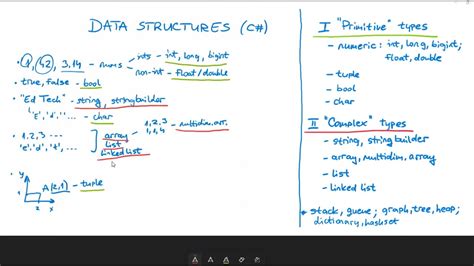 DATA STRUCTURES (C#)
• 1, 42, 3,14 - nums - ints - int, long, bigint
non-int - float/double
• true, false - bool
• "Ed Tech" - string, stringbuilder
'E', 'd', ' ' - char
• 1, 2, 3 ...
'e', 'd', 't', ...
array
list
linked list
1, 2, 3
1, 1, 4
- multidim. arr.
• y
A(2,1) - tuple
1
2 x
I "Primitive" types
- numeric: int, long, bigint;
float, double
- tuple
- bool
- char
II "Complex" types
- string, string builder
- array, multidim, array
- list
- linked list
* stack, queue; graph, tree, heap;
dictionary, hashset